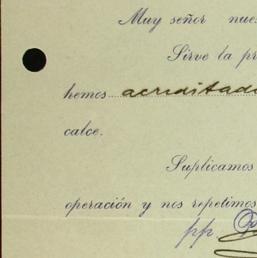 Muy señor
Sirve la
hemos acreditado
calce.
Suplicamos
operación y nos repetimos
pp